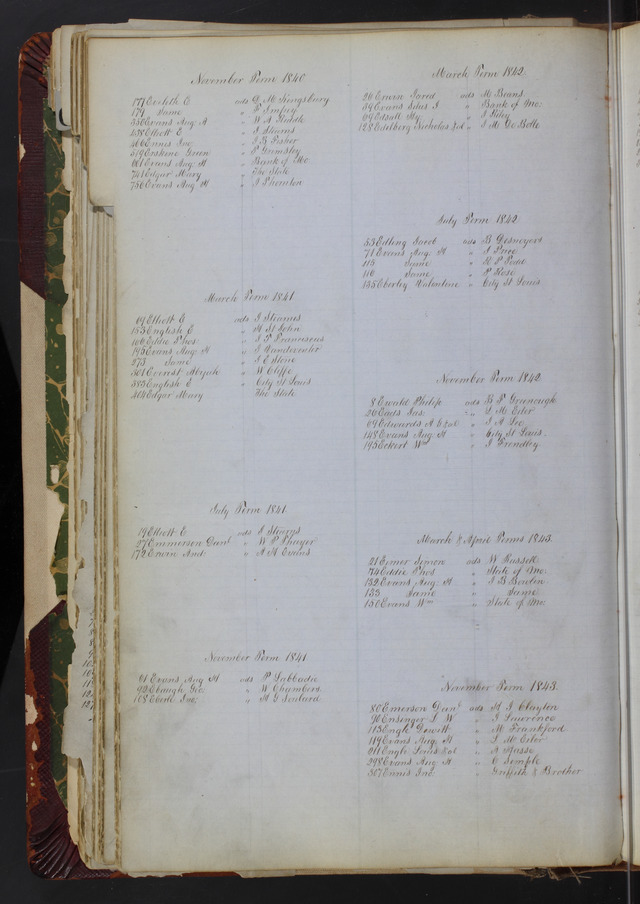 November Term 1840
177 Eveleth E ads G. M. Kingsbury
179 Same " P
350 Evans Aug. H " W A
438 Elliott E " I Stearns
466 Ennis Jno. " I B Fisher
519 Erskine Green " P Grimsley
661 Evans Aug. H " Bank of Mo
741 Edgar Mary " The State
756 Evans Aug. H " I Thornton
March Term 1841.
69 Elliott E ads I Stearns
153 English E " H St John
166 Eddie Thos " I P Franciscus
195 Evans Aug. H " I Vandeventer
273 Same " I E Stone
301 Everest " W Cliffe
383 English E " City St Louis
404 Edgar Mary The State
July Term 1841.
19 Elliott E ads I Stearns
27 Emmerson Danl " W P Thayer
172 Erwin And. " A H Evans
November Term 1841
61 Evans Aug H ads P Labbadie
92 Ebaugh Geo. " W Chambers
108 Eberle Jno. " H G Soulard
March Term 1842
26 Erwin Jared ads M Beans
39 Evans Silas I " Bank of Mo.
69 Etsall Hy " I Riley
128 Edelberg Nicholas &al " I M De Bolle
July Term 1842
55 Edling Jacob ads B Desnoyers
71 Evans Aug. H " I Price
115 Same " R P Todd
116 Same " P Rose
135 Eberley Valentine " City St Louis
November Term 1842.
8 Ewald Philip ads B P Greenough
26 Eads Jas. " I M Eiler
69 Edwards A &al " I A Ivo
148 Evans Aug H " City St Louis.
195 Eckert Wm " I Brondley
March & April Terms 1843.
21 Ermer Simon ads W Russell
74 Eddie Thos " State of Mo.
132 Evans Aug. H " I B Bowlin
133 Same " Same
150 Evans Wm " State of Mo.
November Term 1843.
80 Emerson Danl ads H I Clayton
90 Ensinger L W " I Lawrence
113 Engle Dewitt " M Frankford
119 Evans Aug. H " I M Eiler
211 Engle Louis &al " A Russo
298 Evans Aug H " C Semple
307 Ennis Jno. " Griffith & Brother